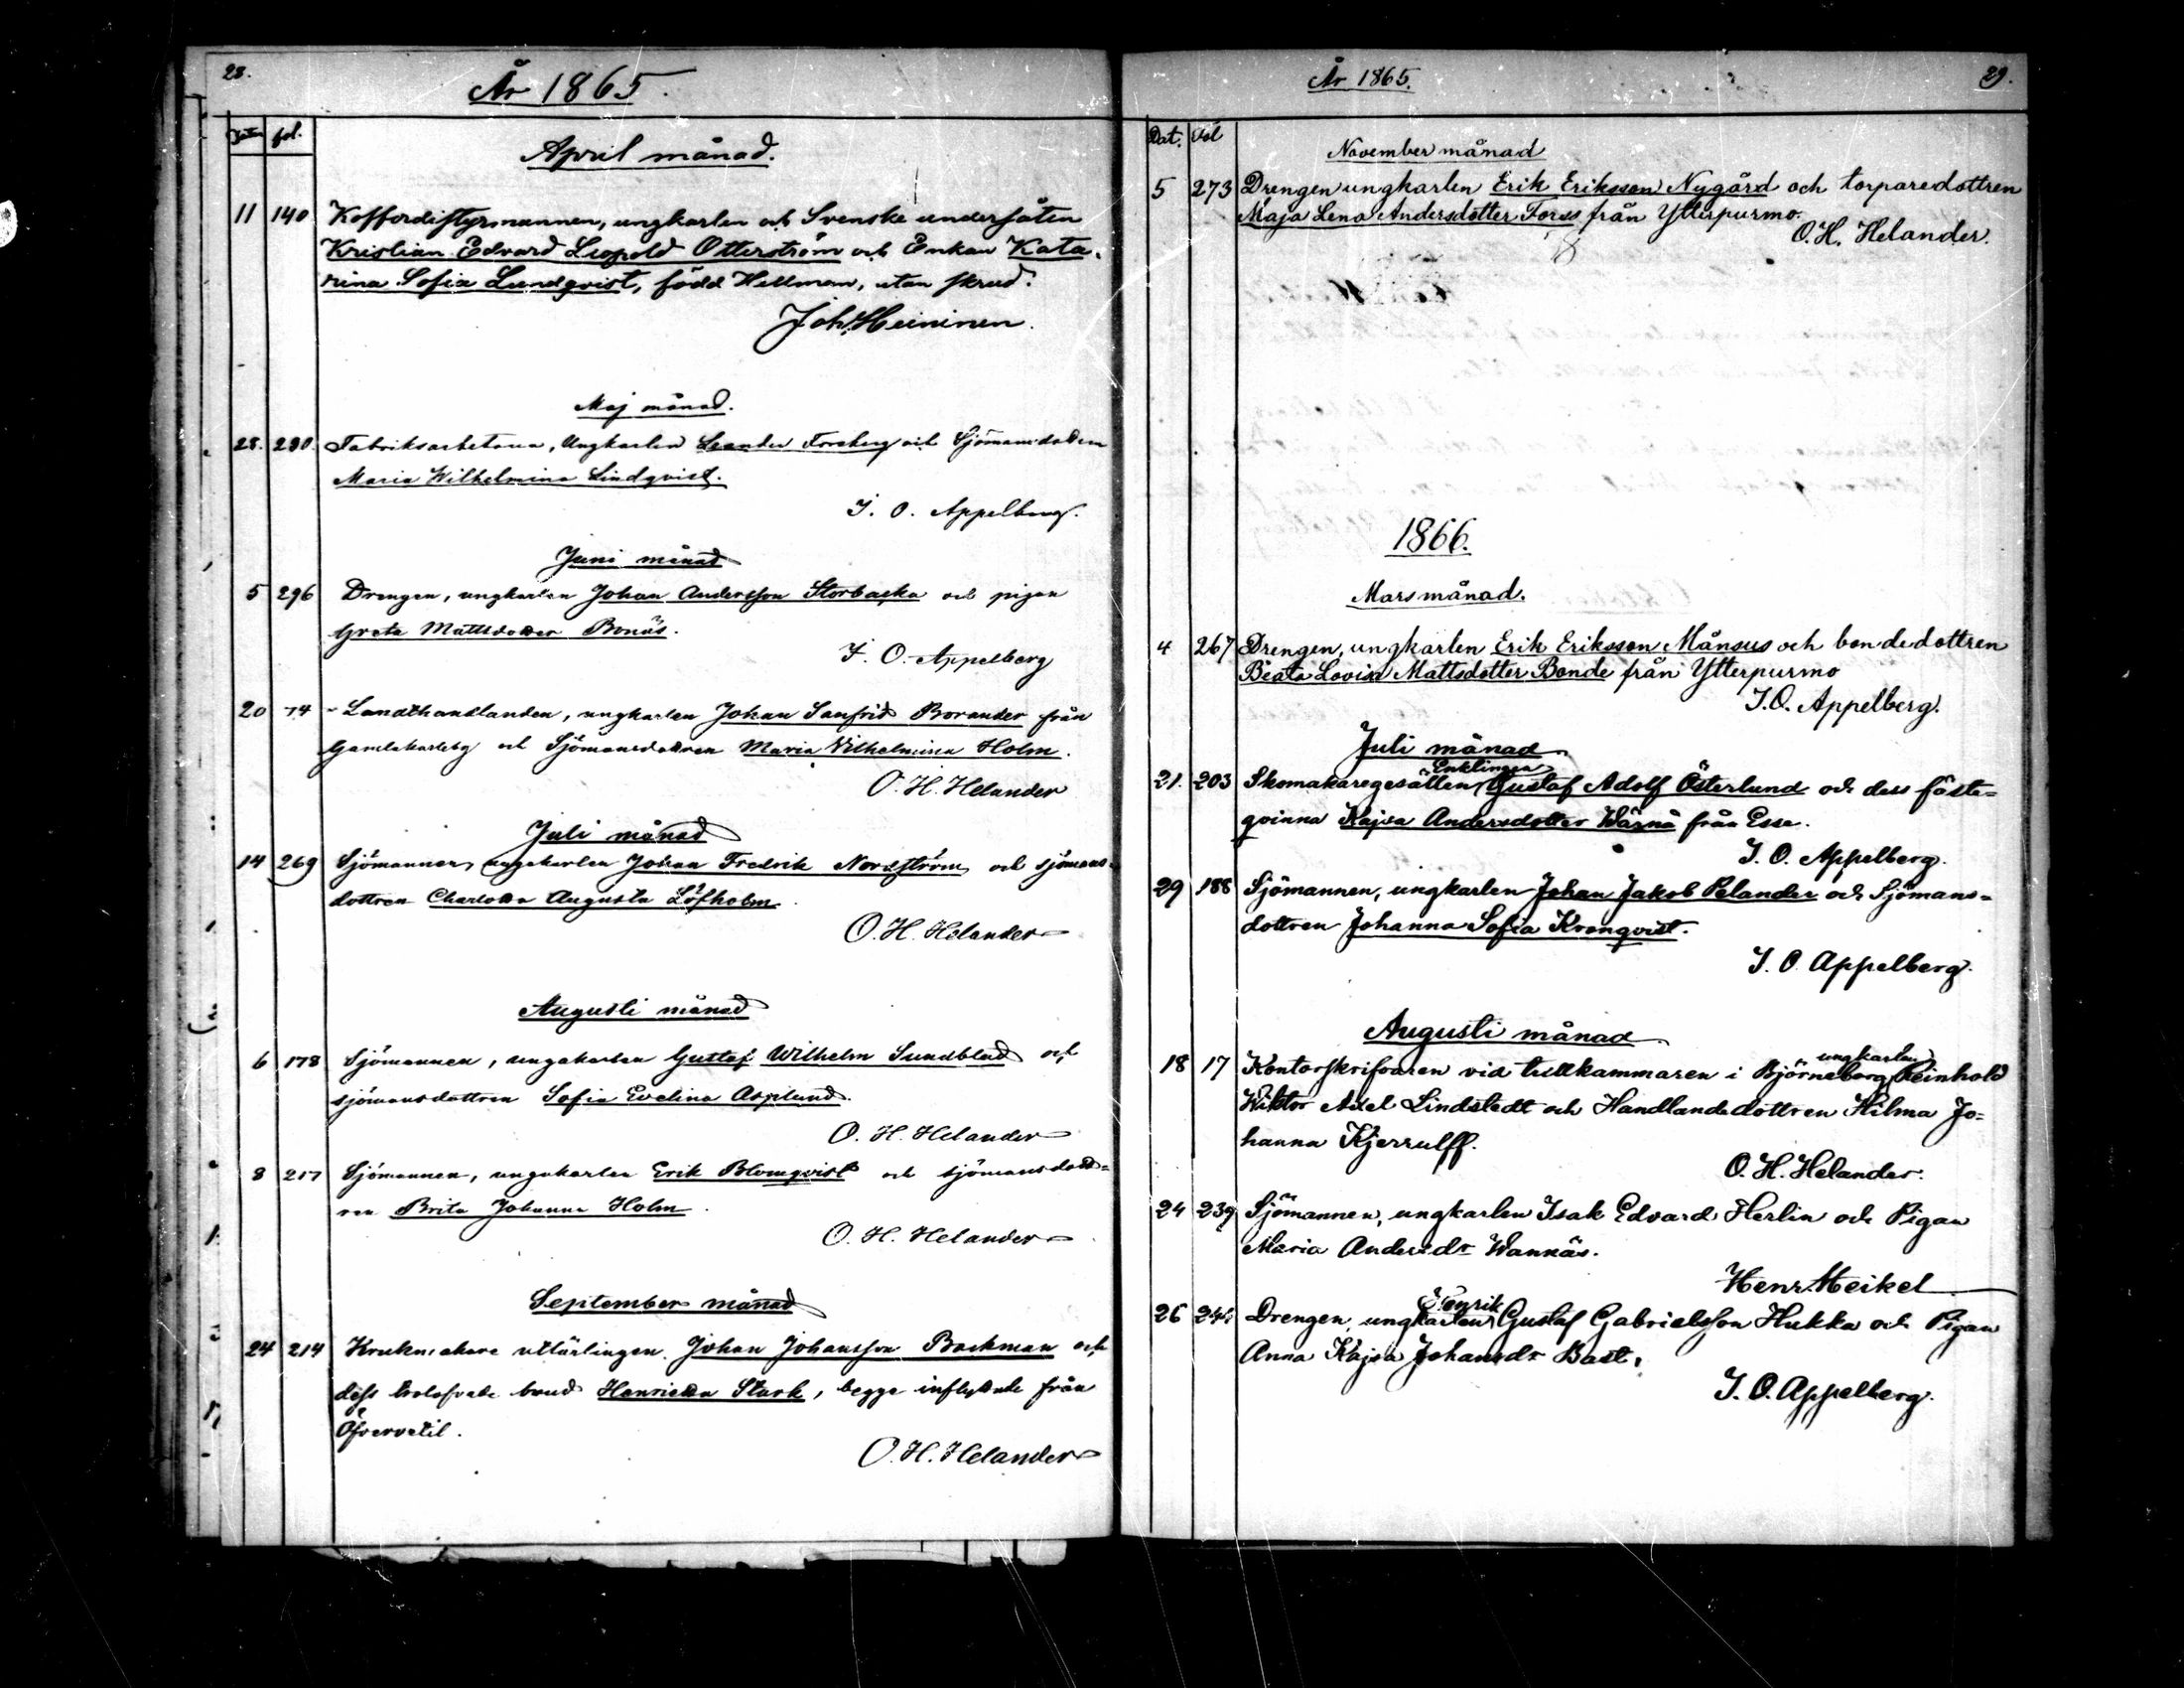 28.
År 1865.
Datum fol.
April månad.
11 140 Koffordistyrmannen, ungkarlen och Svenske undersåten
Kristian Edvard Leopold Otterström och Enkan Kata-
rina Sofia Lundqvist, född Hellman, utan skrud.
Joh. Heininen.
Maj månad.
28. 280. Fabriksarbetaren, Ungkarlen Leander Forsberg och Sjömansdottren
Maria Wilhelmina Lindqvist.
J. O. Appelberg.
Juni månad
5 296 Drengen, ungkarlen Johan Andersson Storbacka och pigan
Greta Mattsdotter Bonäs.
J. O. Appelberg
20 74 Landthandlanden, ungkarlen Johan Sanfrid Borander från
Gamlakarleby och Sjömansdottren Maria Vilhelmina Holm.
O. H. Helander
Juli månad
14 269 Sjömannen, ungkarlen Johan Fredrik Nordström och sjömans-
dottren Charlotta Augusta Löfholm.
O. H. Helander
Augusti månad
6 178 Sjömannen, ungkarlen Gustaf Wilhelm Sundblad och
sjömansdottren Sofia Evelina Asplund.
O. H. Helander
8 217 Sjömannen, ungkarlen Erik Blomqvist och sjömansdott-
ren Brita Johanna Holm.
O. H. Helander
September månad
24 214 Krukmakare Johan Johansson Backman och
dess trolofvade brud Henrietta Stark, begge inflyttade från
Öfvervetil.
O. H. Helander
År 1865.
29.
Dat. Fol
November månad
5 273 Drengen ungkarlen Erik Eriksson Nygård och torparedottren
Maja Lena Andersdotter Forss från Ytterpurmo.
O. H. Helander.
1866.
Mars månad.
4 267 Drengen, ungkarlen Erik Eriksson Månsus och bondedottren
Beata Lovisa Mattsdotter Bonde från Ytterpurmo
J. O. Appelberg.
Juli månad
Enklingen
21. 203 Skomakaregesällen Gustaf Adolf Österlund och dess fäste-
qvinna Kajsa Andersdotter Wärnå från Esse.
J. O. Appelberg.
29 188 Sjömannen, ungkarlen Johan Jakob Pelander och Sjömans-
dottren Johanna Sofia Kronqvist.
J. O. Appelberg.
Augusti månad
ungkarlen
18 17 Kontorskrifvaren vid tullkammaren i Björneborg Reinhold
Wiktor Axel Lindstedt och Handlandedottren Hilma Jo-
hanna Kjerrulff.
O. H. Helander.
24 239 Sjömannen, ungkarlen Isak Edvard Herlin och Pigan
Maria Andersdr Wannäs.
Henr. Heikel
Henrik
26 Drengen, ungkarlen Gustaf Gabrielsson Hukka och Pigan
Anna Kajsa Johansdr Bast.
J. O. Appelberg.